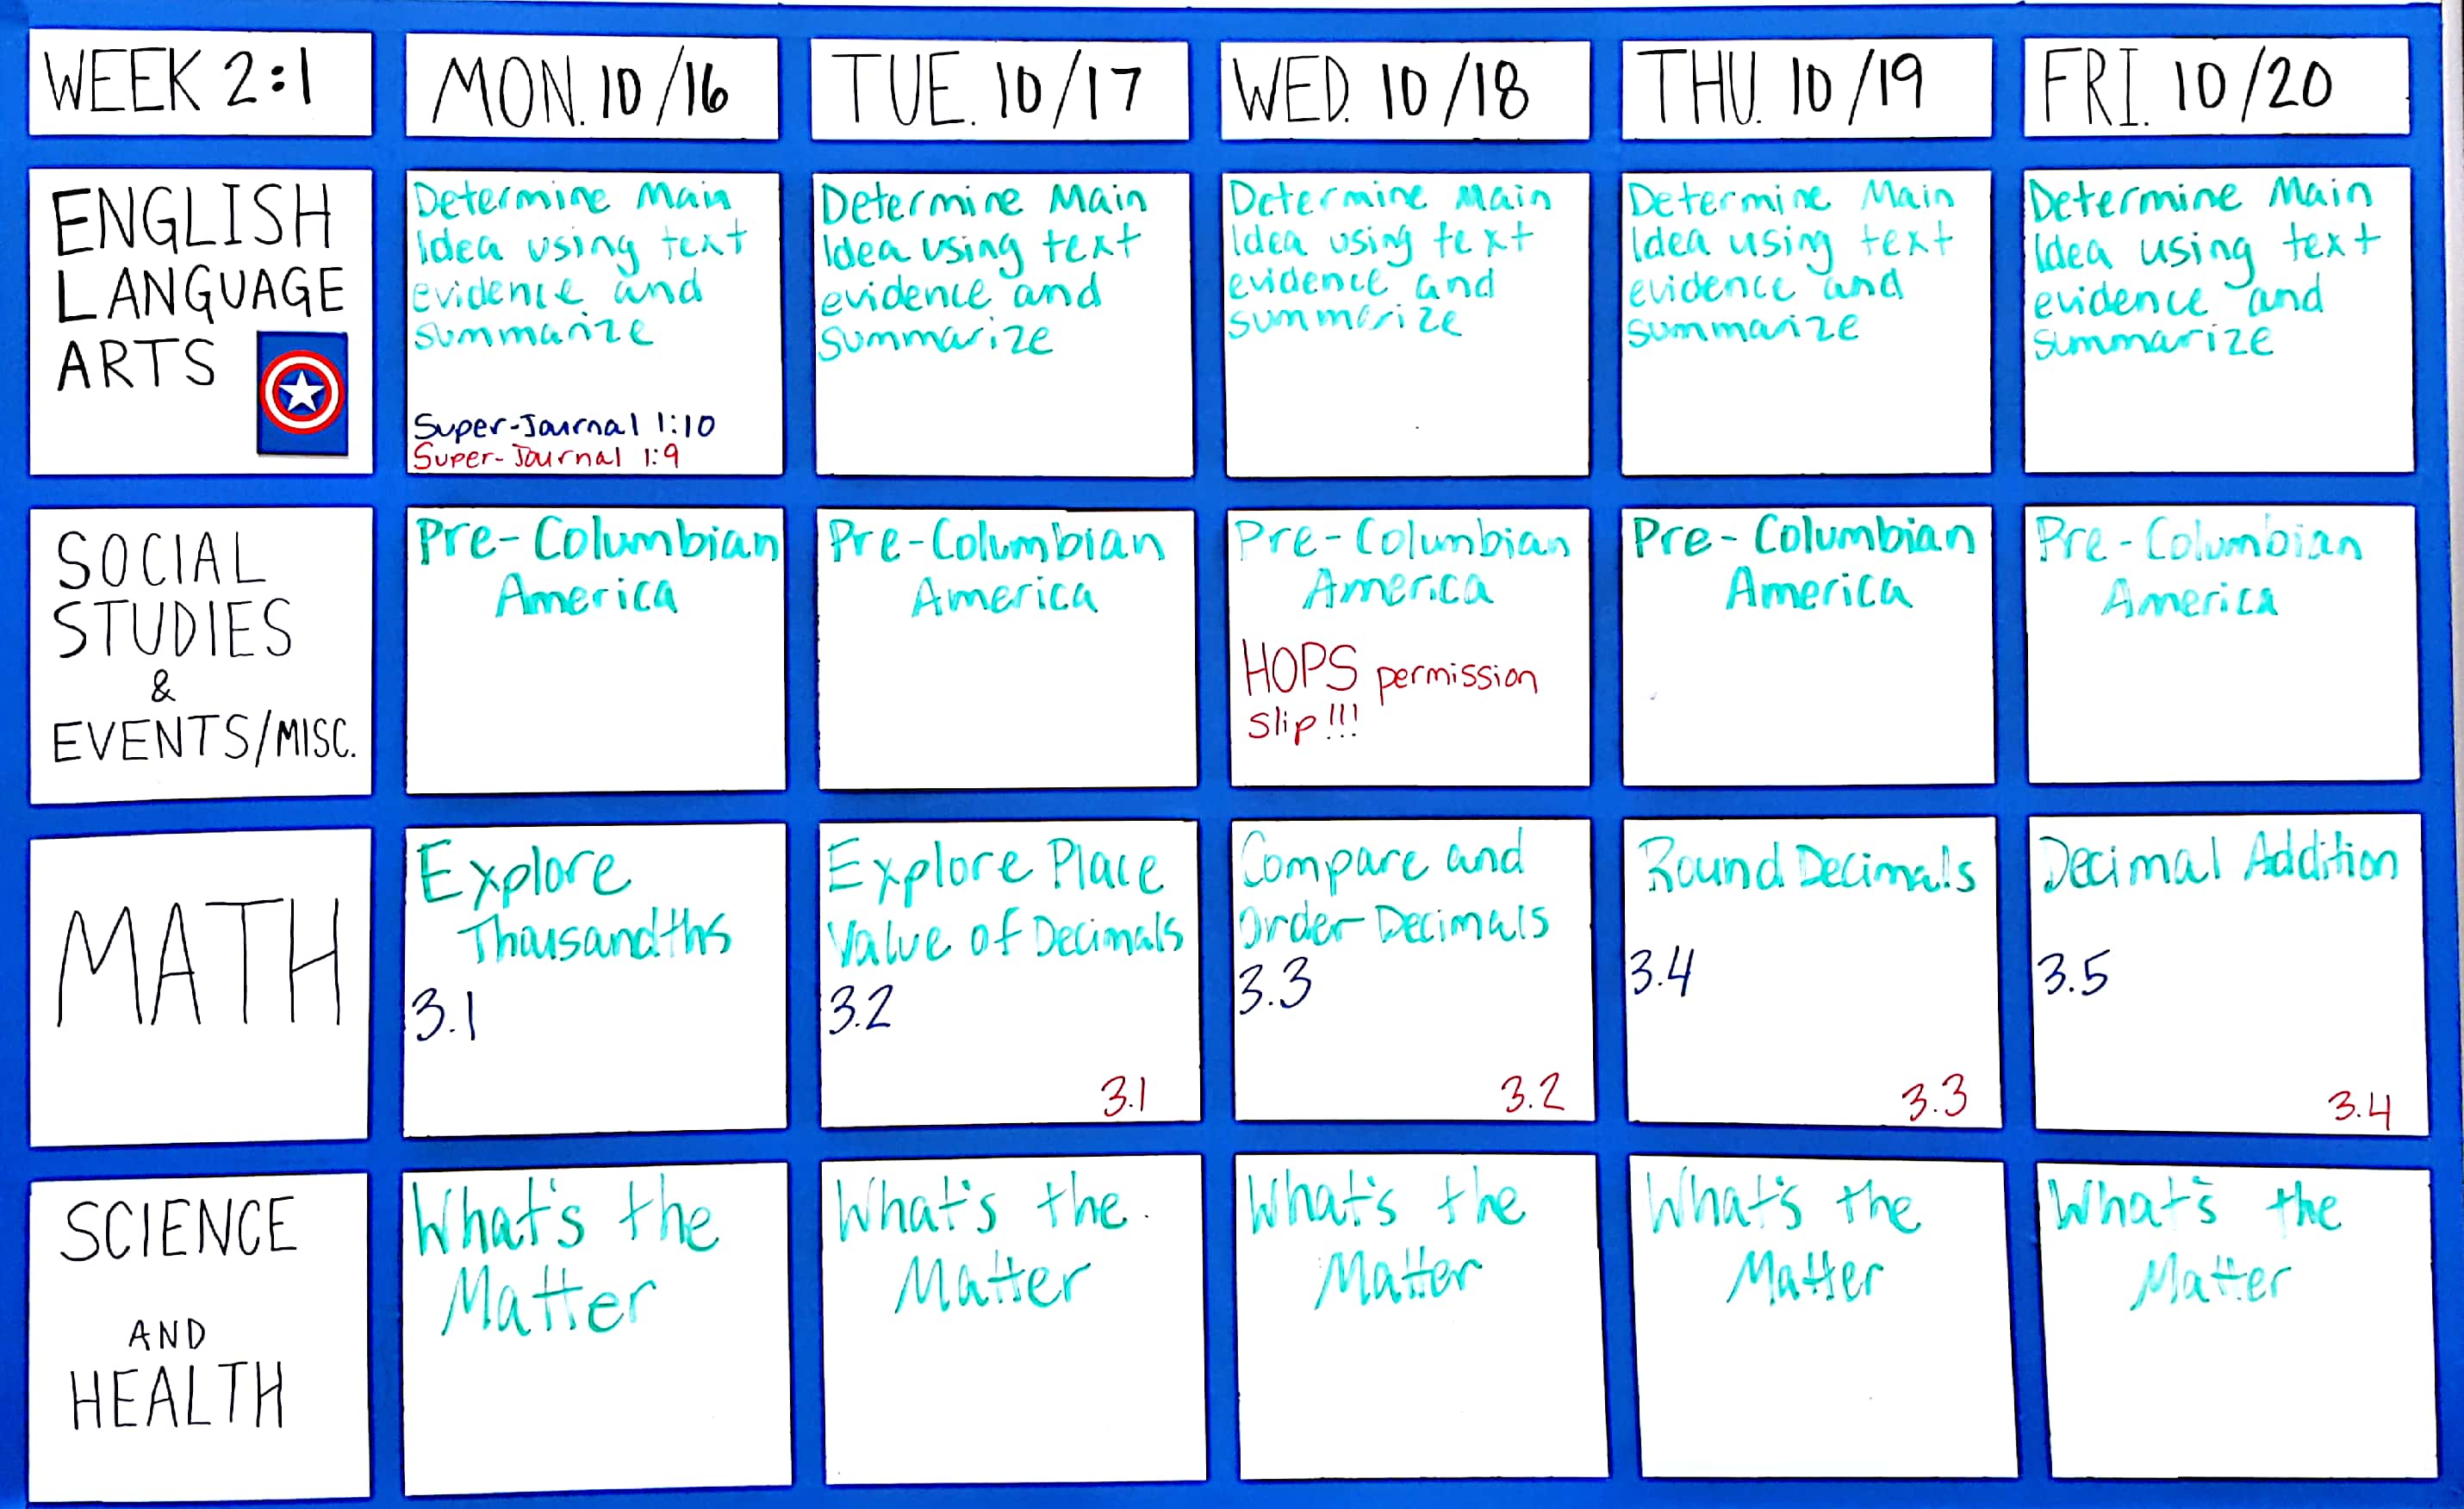 WEEK 2:1
MON. 10/16
TUE. 10/17
WED. 10/18
THU. 10/19
FRI. 10/20
ENGLISH
LANGUAGE
ARTS
Determine Main
Idea using text
evidence and
summarize
Super-Journal 1:10
Super-Journal 1:9
Determine Main
Idea using text
evidence and
summarize
Determine Main
Idea using text
evidence and
summarize
Determine Main
Idea using text
evidence and
summarize
Determine Main
Idea using text
evidence and
summarize
SOCIAL
STUDIES
&
EVENTS/MISC.
Pre-Columbian
America
Pre-Columbian
America
Pre-Columbian
America
HOPS permission
slip!!!
Pre-Columbian
America
Pre-Columbian
America
MATH
Explore
Thousandths
3.1
Explore Place
Value of Decimals
3.2
3.1
Compare and
Order Decimals
3.3
3.2
Round Decimals
3.4
3.3
Decimal Addition
3.5
3.4
SCIENCE
AND
HEALTH
What's the
Matter
What's the
Matter
What's the
Matter
What's the
Matter
What's the
Matter